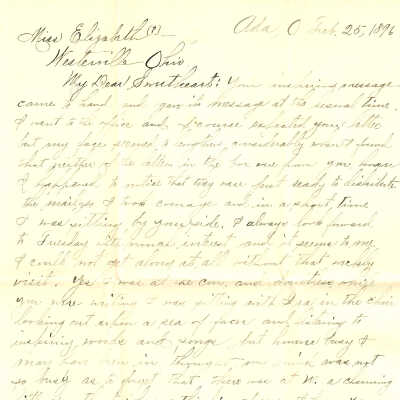 Ada, O Feb. 25, 1896
Miss Elizabeth
Westerville Ohio
My Dear Sweetheart: Your inspiring message
came to hand and gave its message at the usual time.
I went to the office and of course expected your letter
but my face seemed to lengthen considerably when I found
that neither of the letters in the box were from you
I happened to notice that they were just ready to distribute
the mail so I took courage and in a short time
I was sitting by your side. I always look forward
to Tuesday with much interest and it seems to me
I could not get along at all without that
visit. Yes I was at and doubtless while
you were writing I was sitting with in the choir
looking out upon a sea of faces and listening to
inspiring words and songs, but however busy I
may have been in thought, my mind was not
so busy as to forget that there was at W. a charming